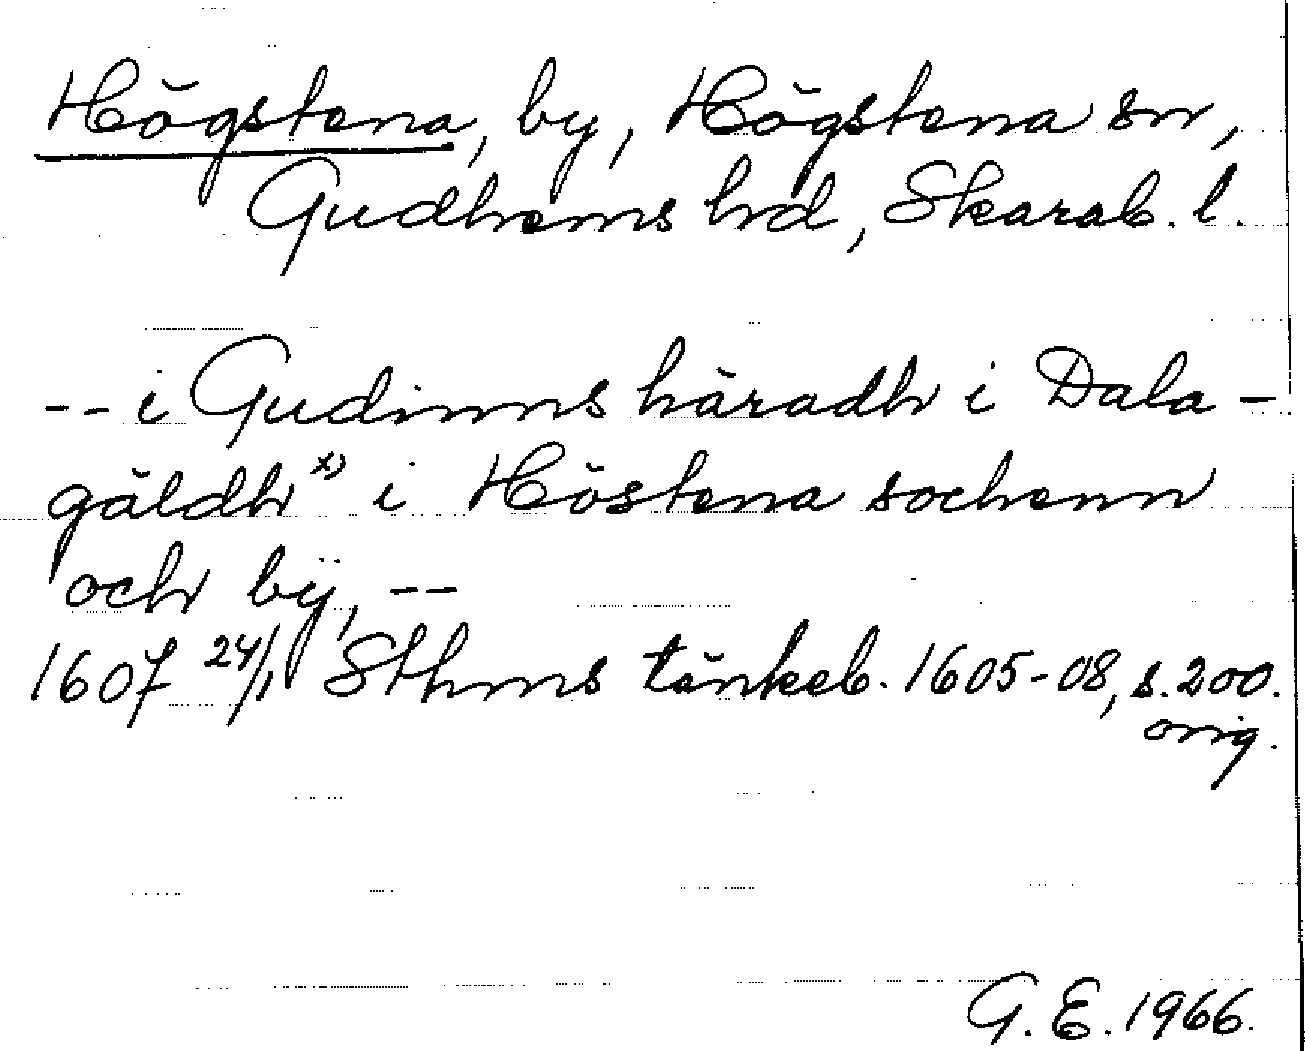 Högstena, by, Högstena sn,
Gudhems hd, Skarab. l.
-- i Gudinns häradh i Dala-
gäldh x) i Höstena sochenn
och bÿ, --
1607 24/1 Sthms tänkeb. 1605-08, s. 200.
orig.
G. E. 1966.